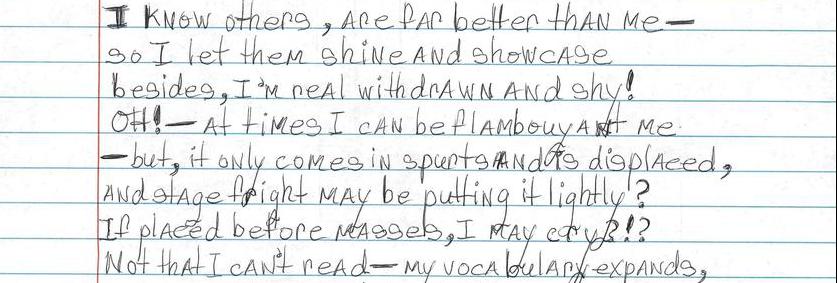 I KNOW others, ARE fAR better thAN Me—
so I let theM shiNe ANd showcAse
besides, I'M reAl withdrAWN ANd shy!
OH!—At tiMes I cAN be flAMbouyANt Me
—but, it oNly coMes iN spurts ANd is displAced,
ANd stAge fright MAy be puttiNg it lightly?
If plAced before MAsses, I MAy cry!?
Not thAt I cAN't reAd—My vocAbulAry expANds,